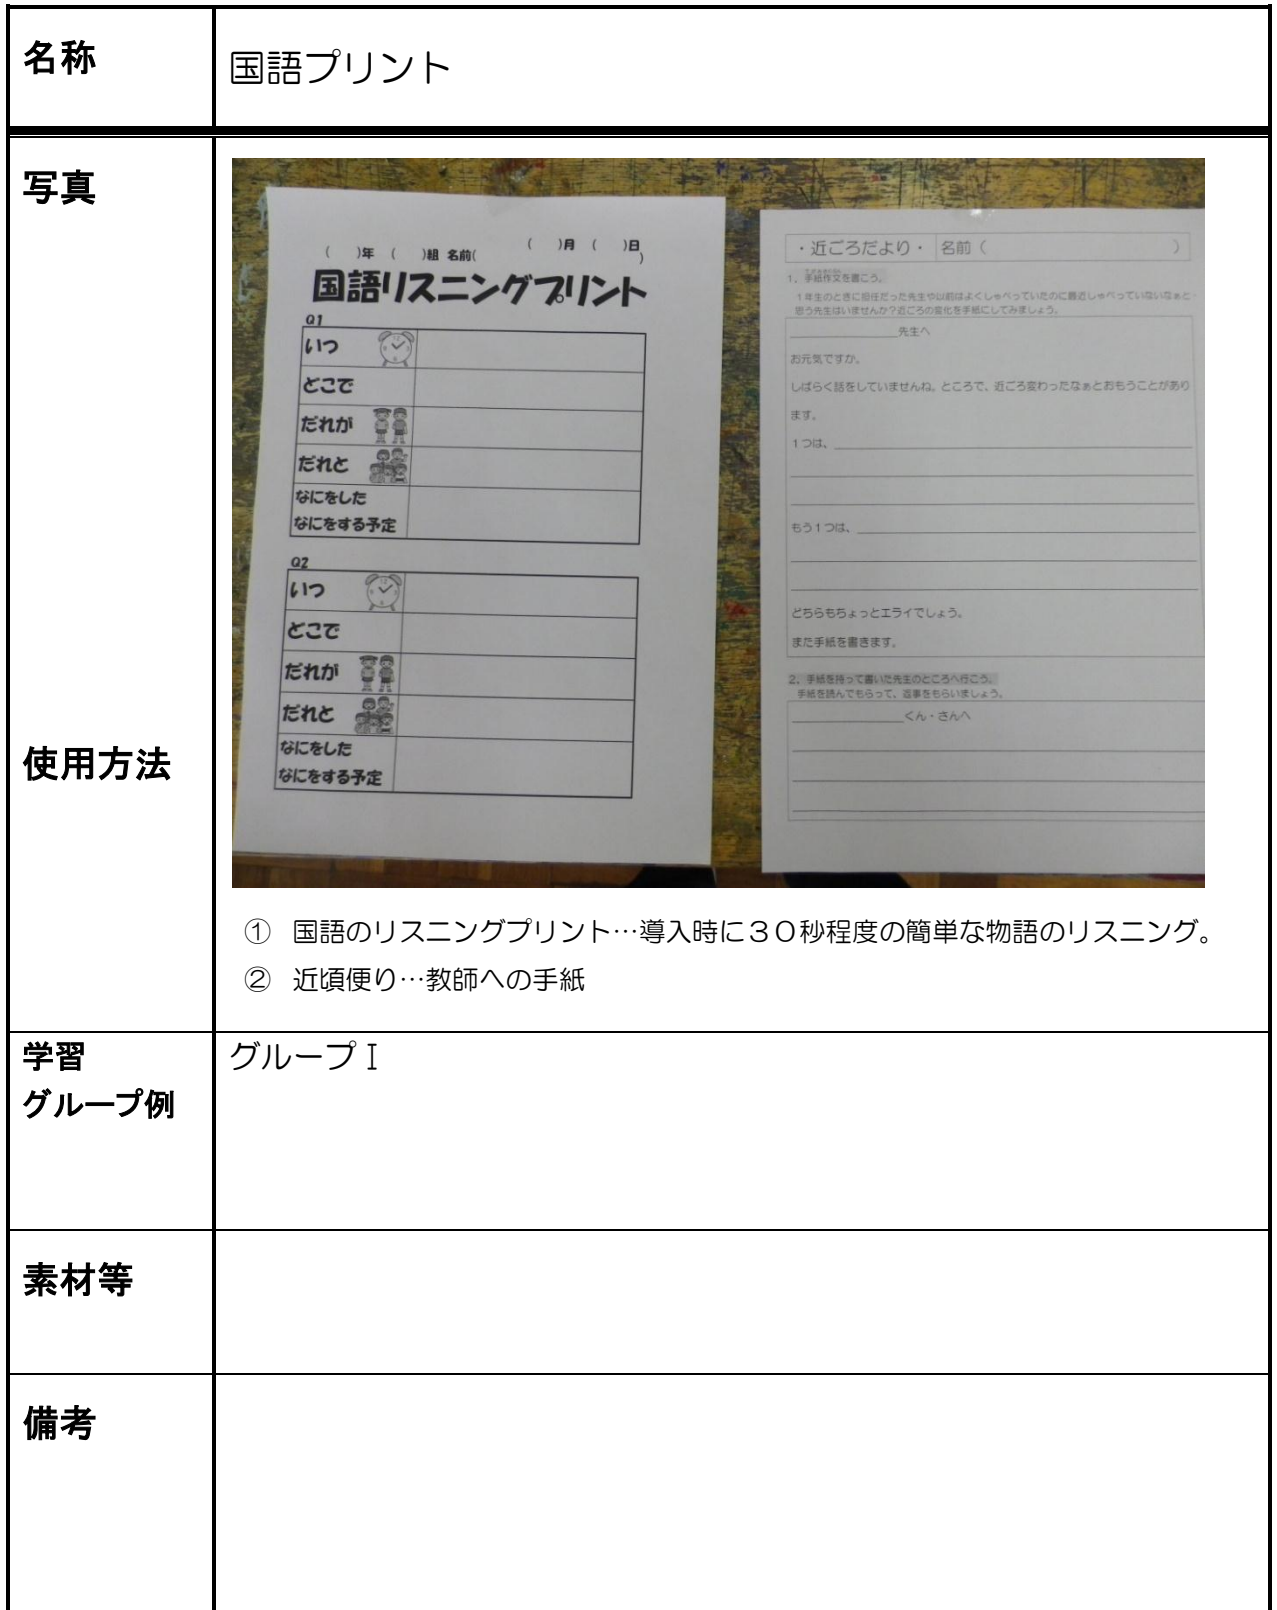 名称
国語プリント
写真
(　　)月 (　　)日
(　　)年 (　　)組 名前(　　　　　　　)
国語リスニングプリント
Q1
いつ
どこで
だれが
だれと
なにをした
なにをする予定
Q2
いつ
どこで
だれが
だれと
なにをした
なにをする予定
・近ごろだより・ 名前（　　　　　　　）
1、手紙作文を書こう。
1年生のときに担任だった先生や以前はよくしゃべっていたのに最近しゃべっていないなぁと
思う先生はいませんか？近ごろの変化を手紙にしてみましょう。
先生へ
お元気ですか。
しばらく話をしていませんね。ところで、近ごろ変わったなぁとおもうことがあり
ます。
1つは、
もう1つは、
どちらもちょっとエライでしょう。
また手紙を書きます。
2、手紙を持って書いた先生のところへ行こう。
手紙を読んでもらって、返事をもらいましょう。
くん・さんへ
使用方法
① 国語のリスニングプリント…導入時に３０秒程度の簡単な物語のリスニング。
② 近頃便り…教師への手紙
学習
グループ例
グループⅠ
素材等
備考